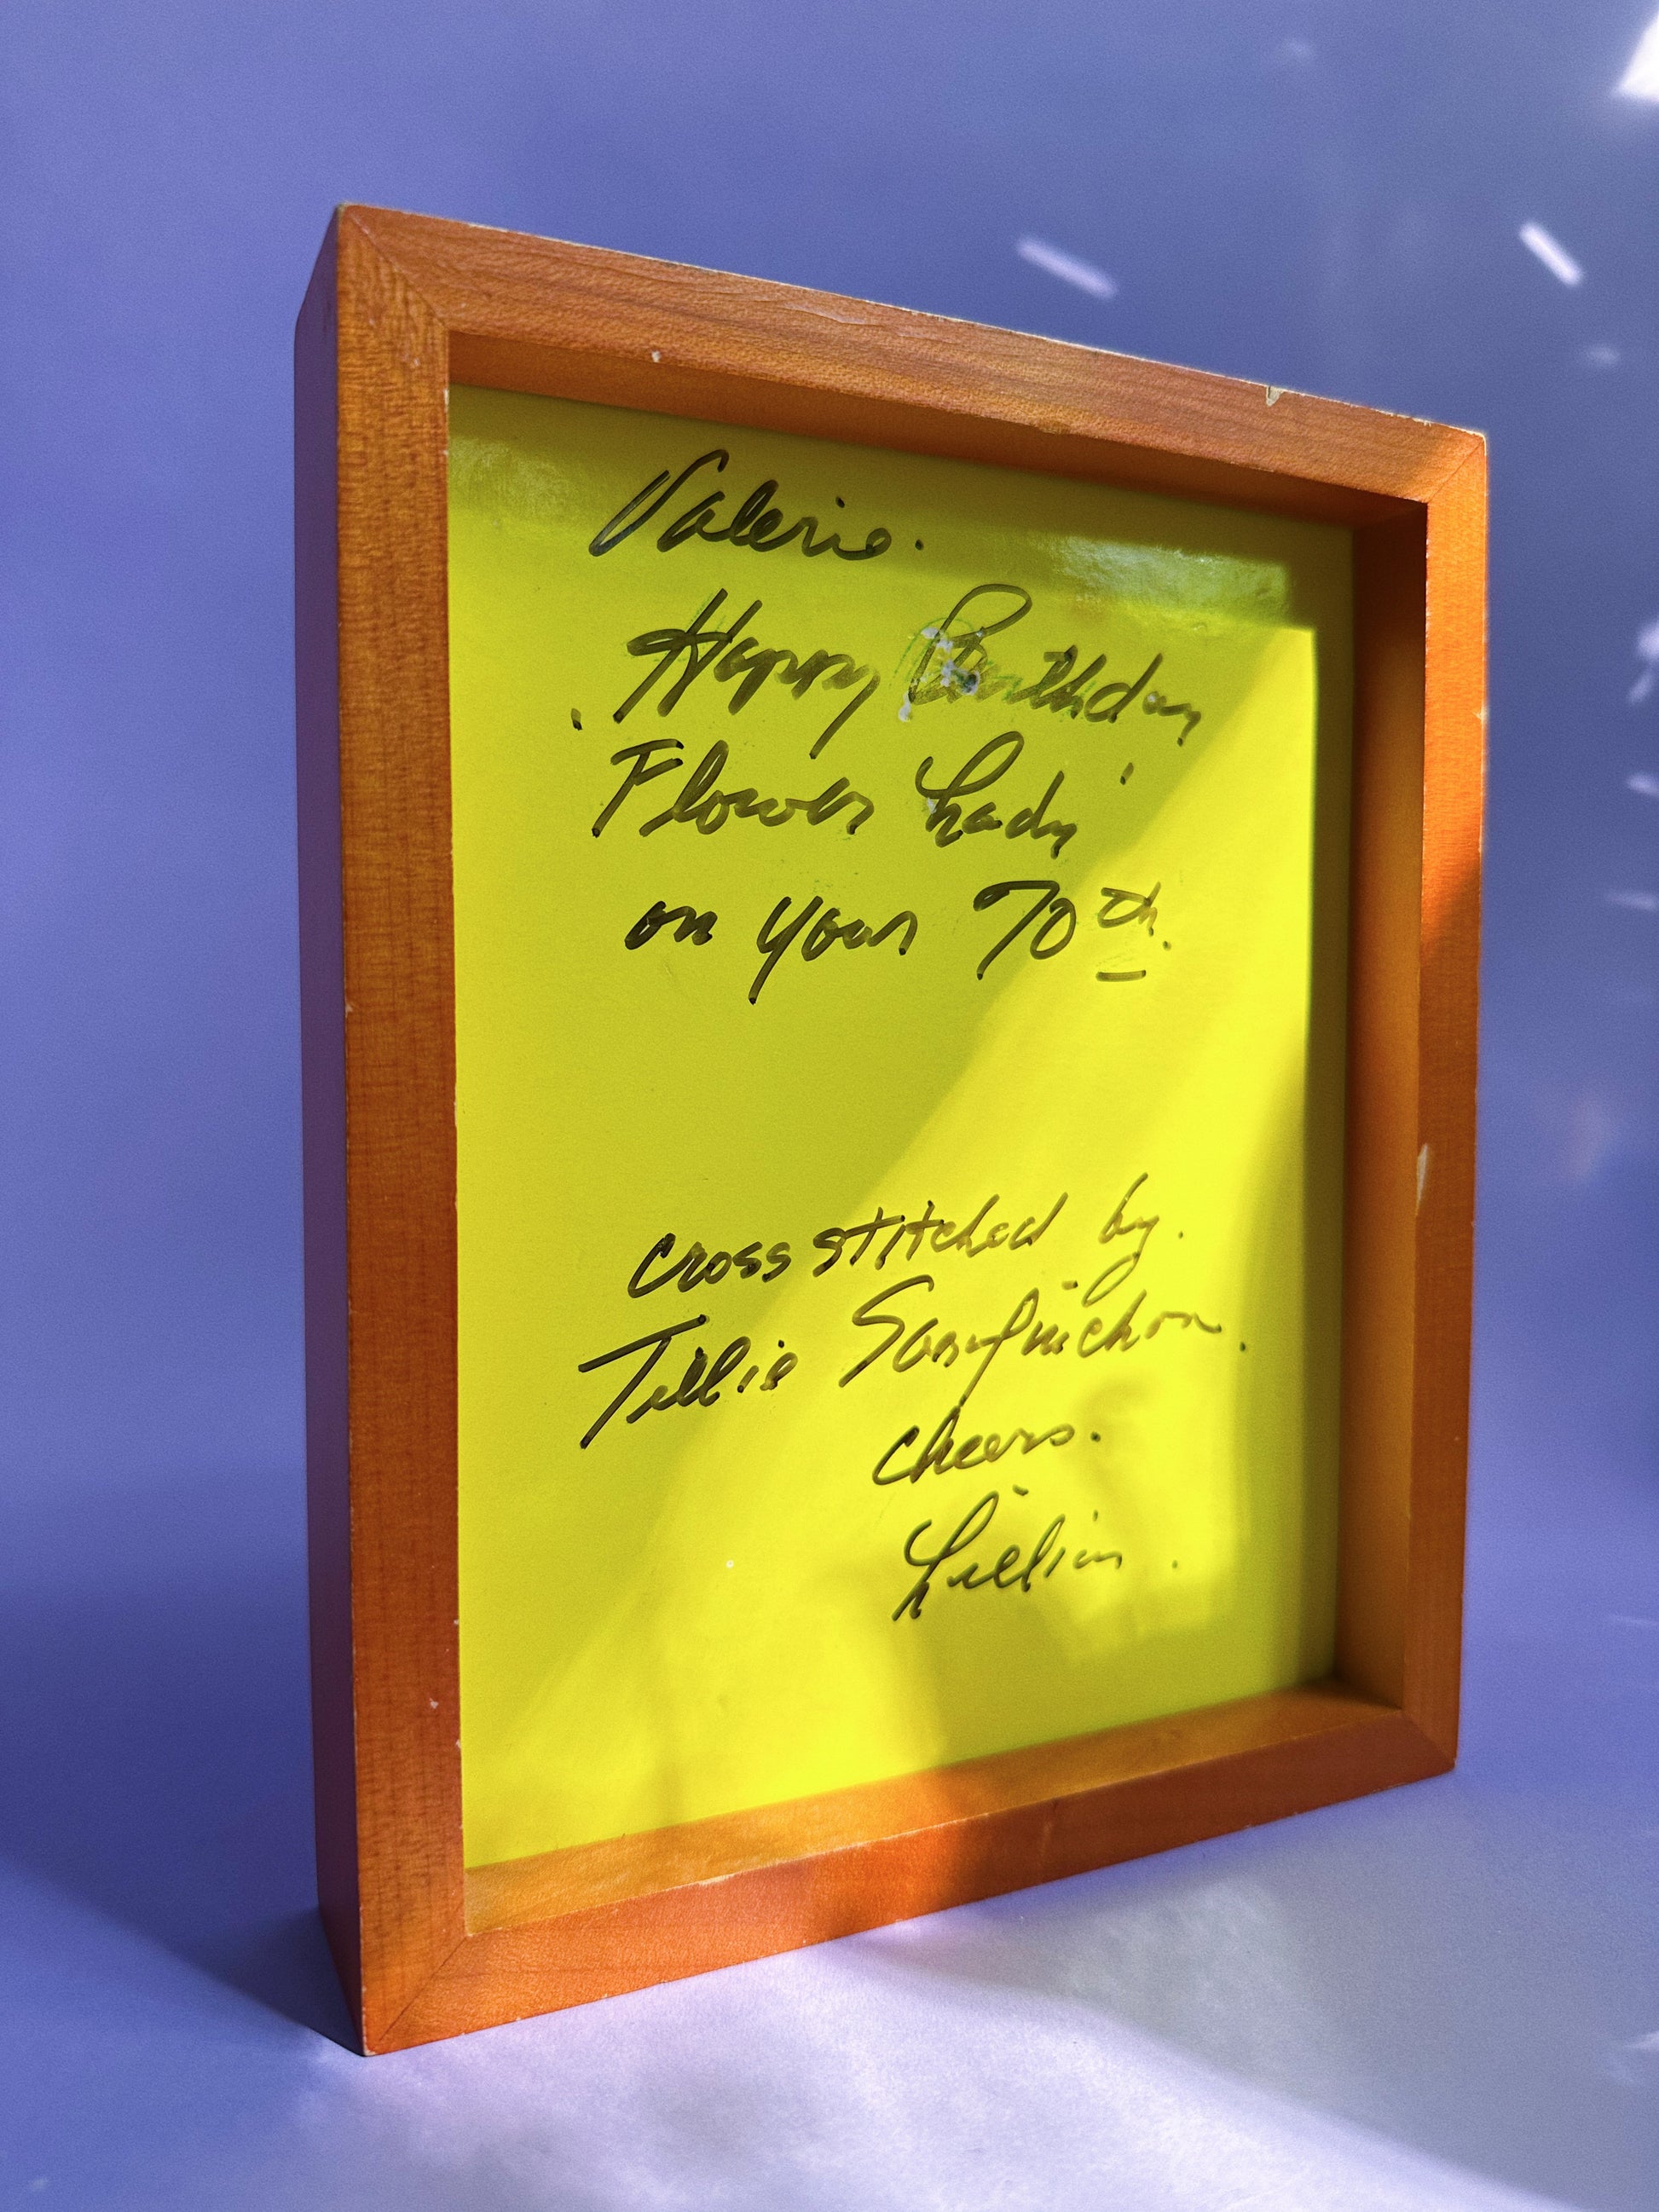 Valerie.
'Happy Birthday
Flower Lady'
on your 70th.
cross stitched by.
Tillie
cheers.
Lillian.